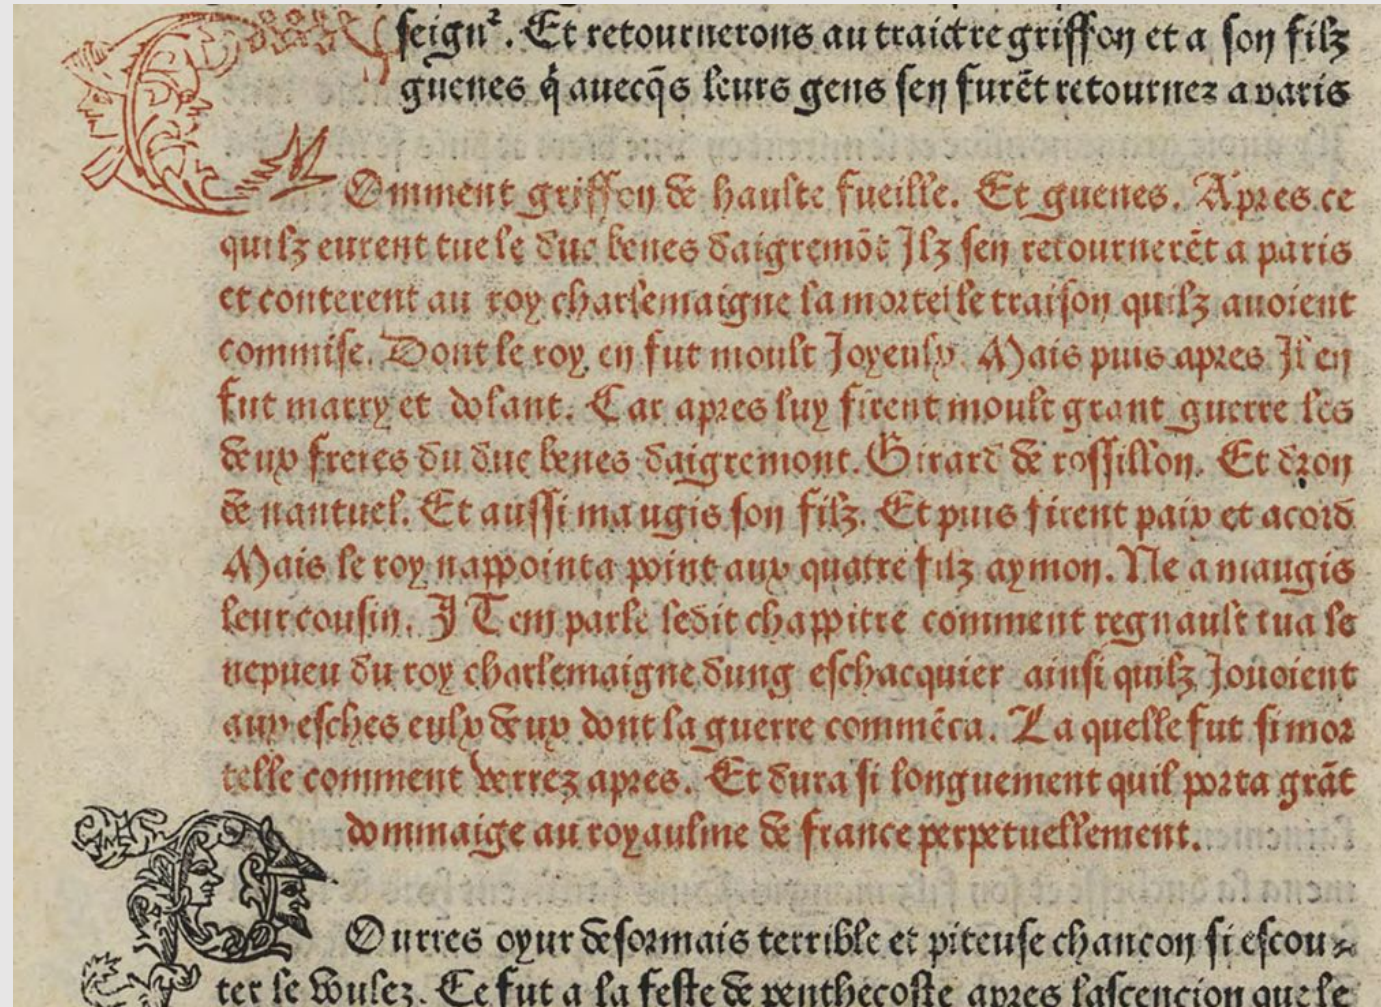 seignr. Et retournerons au traictre griffon et a son filz
guenes q̃ auecq̃s leurs gens sen furẽt retournez a paris
COmment griffon de haulte fueille. Et guenes. Apres ce
quilz eurent tue le duc benes daigremõt Jlz sen retournerẽt a paris
et conterent au roy charlemaigne la mortelle traison quilz auoient
commise. Dont le roy en fut moult Joyeulx. Mais puis apres Jl en
fut marry et dolant. Car apres luy firent moult grant guerre les
deux freres du duc benes daigremont. Girard de rossillon. Et dron
de nantuel. Et aussi maugis son filz. Et puis firent paix et acord
Mais le roy nappointa point aux quatre filz aymon. Ne a maugis
leur cousin. JTem parle ledit chappitre comment regnault tua le
nepueu du roy charlemaigne dung eschacquier ainsi quilz Jouoient
aux esches eulx deux dont la guerre commẽca. La quelle fut si mor
telle comment verrez apres. Et dura si longuement quil porta grãt
dommaige au royaulme de france perpetuellement.
OUrres oyur desormais terrible et piteuse chancon si escou⸗
ter le voulez. Ce fut a la feste de penthecoste apres lascencion que le